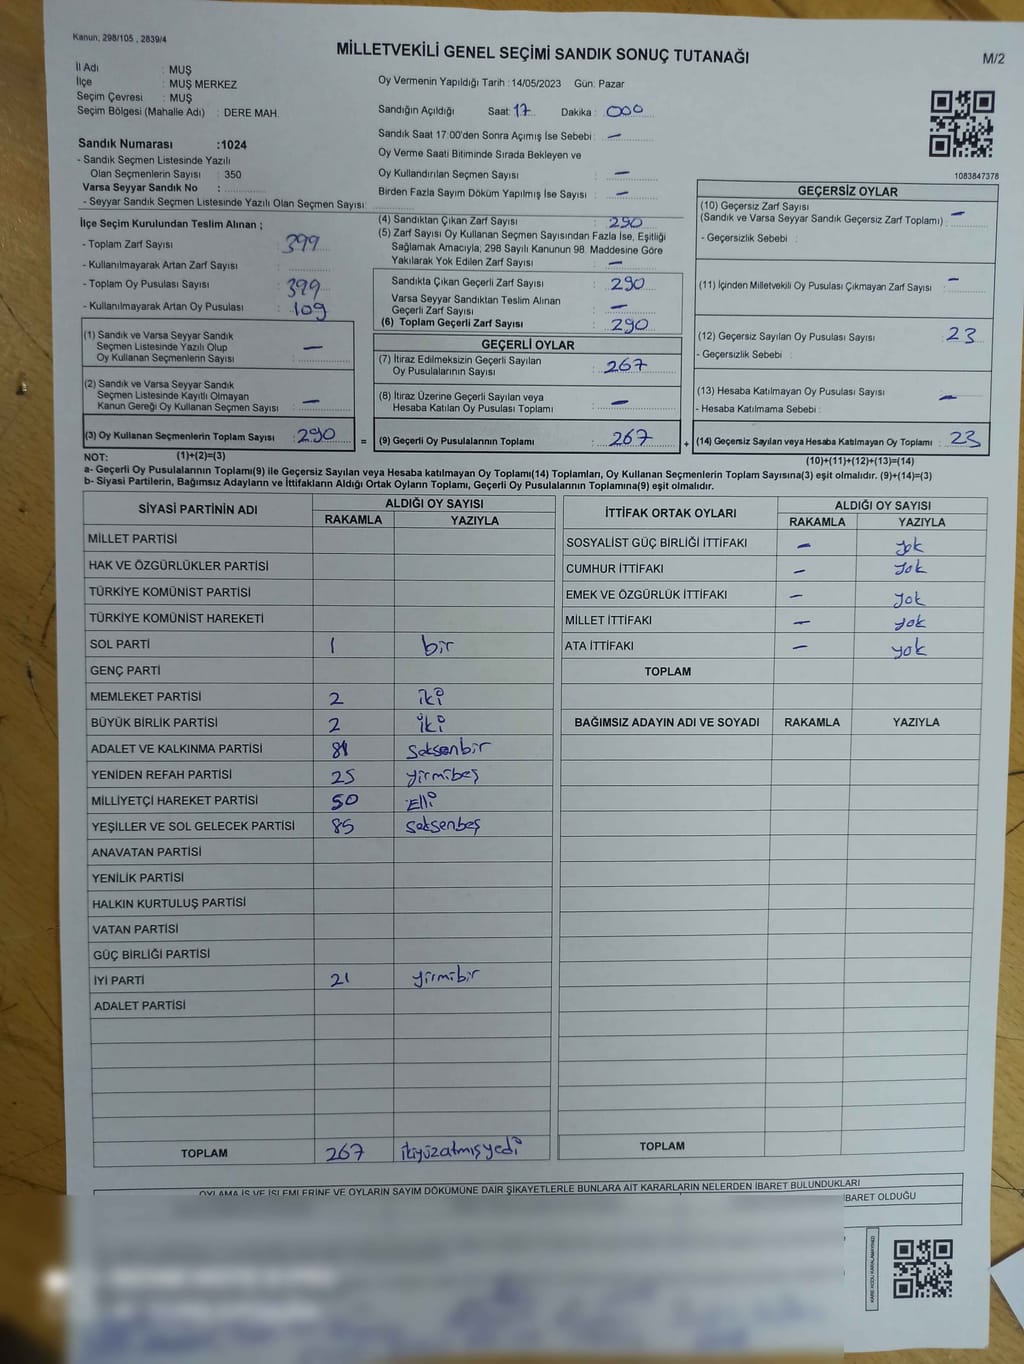 Kanun, 298/105 , 2839/4
MİLLETVEKİLİ GENEL SEÇİMİ SANDIK SONUÇ TUTANAĞI
M/2
İl Adı : MUŞ
İlçe : MUŞ MERKEZ
Seçim Çevresi : MUŞ
Seçim Bölgesi (Mahalle Adı) : DERE MAH.
Sandık Numarası :1024
- Sandık Seçmen Listesinde Yazılı
Olan Seçmenlerin Sayısı : 350
Varsa Seyyar Sandık No :
- Seyyar Sandık Seçmen Listesinde Yazılı Olan Seçmen Sayısı:
Oy Vermenin Yapıldığı Tarih :14/05/2023 Gün: Pazar
Sandığın Açıldığı Saat: 17 Dakika : 000
Sandık Saat 17:00'den Sonra Açımış İse Sebebi : —
Oy Verme Saati Bitiminde Sırada Bekleyen ve
Oy Kullandırılan Seçmen Sayısı : —
Birden Fazla Sayım Döküm Yapılmış İse Sayısı : —
1083847378
İlçe Seçim Kurulundan Teslim Alınan ;
- Toplam Zarf Sayısı : 399
- Kullanılmayarak Artan Zarf Sayısı :
- Toplam Oy Pusulası Sayısı : 399
- Kullanılmayarak Artan Oy Pusulası : 109
(1) Sandık ve Varsa Seyyar Sandık
Seçmen Listesinde Yazılı Olup
Oy Kullanan Seçmenlerin Sayısı : —
(2) Sandık ve Varsa Seyyar Sandık
Seçmen Listesinde Kayıtlı Olmayan
Kanun Gereği Oy Kullanan Seçmen Sayısı : —
(3) Oy Kullanan Seçmenlerin Toplam Sayısı : 290
(4) Sandıktan Çıkan Zarf Sayısı : 290
(5) Zarf Sayısı Oy Kullanan Seçmen Sayısından Fazla İse, Eşitliği
Sağlamak Amacıyla, 298 Sayılı Kanunun 98. Maddesine Göre
Yakılarak Yok Edilen Zarf Sayısı : —
Sandıkta Çıkan Geçerli Zarf Sayısı : 290
Varsa Seyyar Sandıktan Teslim Alınan
Geçerli Zarf Sayısı : —
(6) Toplam Geçerli Zarf Sayısı : 290
GEÇERLİ OYLAR
(7) İtiraz Edilmeksizin Geçerli Sayılan
Oy Pusulalarının Sayısı : 267
(8) İtiraz Üzerine Geçerli Sayılan veya
Hesaba Katılan Oy Pusulası Toplamı : —
= (9) Geçerli Oy Pusulalarının Toplamı : 267
GEÇERSİZ OYLAR
(10) Geçersiz Zarf Sayısı
(Sandık ve Varsa Seyyar Sandık Geçersiz Zarf Toplamı) : —
- Geçersizlik Sebebi :
(11) İçinden Milletvekili Oy Pusulası Çıkmayan Zarf Sayısı : —
(12) Geçersiz Sayılan Oy Pusulası Sayısı : 23
- Geçersizlik Sebebi :
(13) Hesaba Katılmayan Oy Pusulası Sayısı : —
- Hesaba Katılmama Sebebi :
+ (14) Geçersiz Sayılan veya Hesaba Katılmayan Oy Toplamı : 23
NOT: (1)+(2)=(3)
(10)+(11)+(12)+(13)=(14)
a- Geçerli Oy Pusulalarının Toplamı(9) ile Geçersiz Sayılan veya Hesaba katılmayan Oy Toplamı(14) Toplamları, Oy Kullanan Seçmenlerin Toplam Sayısına(3) eşit olmalıdır. (9)+(14)=(3)
b- Siyasi Partilerin, Bağımsız Adayların ve İttifakların Aldığı Ortak Oyların Toplamı, Geçerli Oy Pusulalarının Toplamına(9) eşit olmalıdır.
SİYASİ PARTİNİN ADI ALDIĞI OY SAYISI
RAKAMLA YAZIYLA
MİLLET PARTİSİ
HAK VE ÖZGÜRLÜKLER PARTİSİ
TÜRKİYE KOMÜNİST PARTİSİ
TÜRKİYE KOMÜNİST HAREKETİ
SOL PARTİ 1 bir
GENÇ PARTİ
MEMLEKET PARTİSİ 2 iki
BÜYÜK BİRLİK PARTİSİ 2 iki
ADALET VE KALKINMA PARTİSİ 81 seksenbir
YENİDEN REFAH PARTİSİ 25 yirmibeş
MİLLİYETÇİ HAREKET PARTİSİ 50 Elli
YEŞİLLER VE SOL GELECEK PARTİSİ 85 seksenbeş
ANAVATAN PARTİSİ
YENİLİK PARTİSİ
HALKIN KURTULUŞ PARTİSİ
VATAN PARTİSİ
GÜÇ BİRLİĞİ PARTİSİ
İYİ PARTİ 21 yirmibir
ADALET PARTİSİ
TOPLAM 267 ikiyüzatmışyedi
İTTİFAK ORTAK OYLARI ALDIĞI OY SAYISI
RAKAMLA YAZIYLA
SOSYALİST GÜÇ BİRLİĞİ İTTİFAKI — yok
CUMHUR İTTİFAKI — yok
EMEK VE ÖZGÜRLÜK İTTİFAKI — yok
MİLLET İTTİFAKI — yok
ATA İTTİFAKI — yok
TOPLAM
BAĞIMSIZ ADAYIN ADI VE SOYADI RAKAMLA YAZIYLA
TOPLAM
OYLAMA İŞ VE İŞLEMLERİNE VE OYLARIN SAYIM DÖKÜMÜNE DAİR ŞİKAYETLERLE BUNLARA AİT KARARLARIN NELERDEN İBARET BULUNDUKLARI
İBARET OLDUĞU
KARE KODU KARALAMAYINIZ!